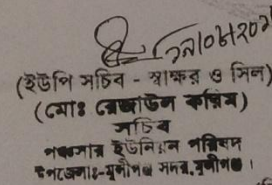 (ইউপি সচিব - স্বাক্ষর ও সিল)
(মোঃ রেজাউল করিম)
সচিব
পঞ্চসার ইউনিয়ন পরিষদ
উপজেলাঃ-মুন্সীগঞ্জ সদর, মুন্সীগঞ্জ।